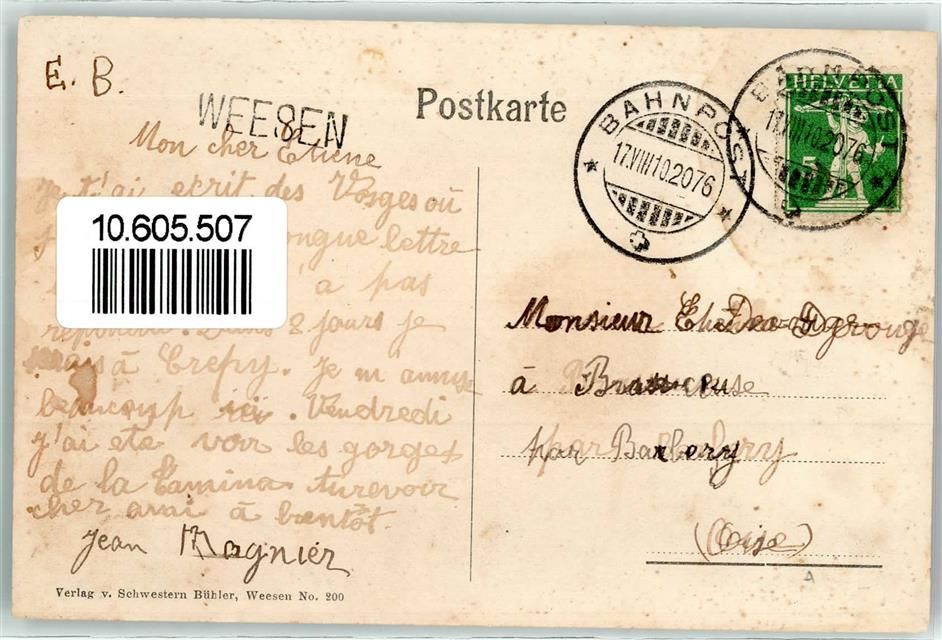 E. B.
WEESEN
Postkarte
BAHNPOST
17.VIII10.2076
BAHNPOST
17.VIII10.2076
HELVETIA
5
Mon cher Etiene
Je t'ai ecrit des Vosges où
longue lettre
10.605.507
à pas
repondu. Dans 8 jours je
à Crepy. Je m'annuye
beaucoup ici. Vendredi
j'ai ete voir les gorges
de la Tamina. Aurevoir
cher amai à bientôt.
Jean Magnier
Monsieur
à
par Barbery
(Oise)
A
Verlag v. Schwestern Bühler, Weesen No. 200